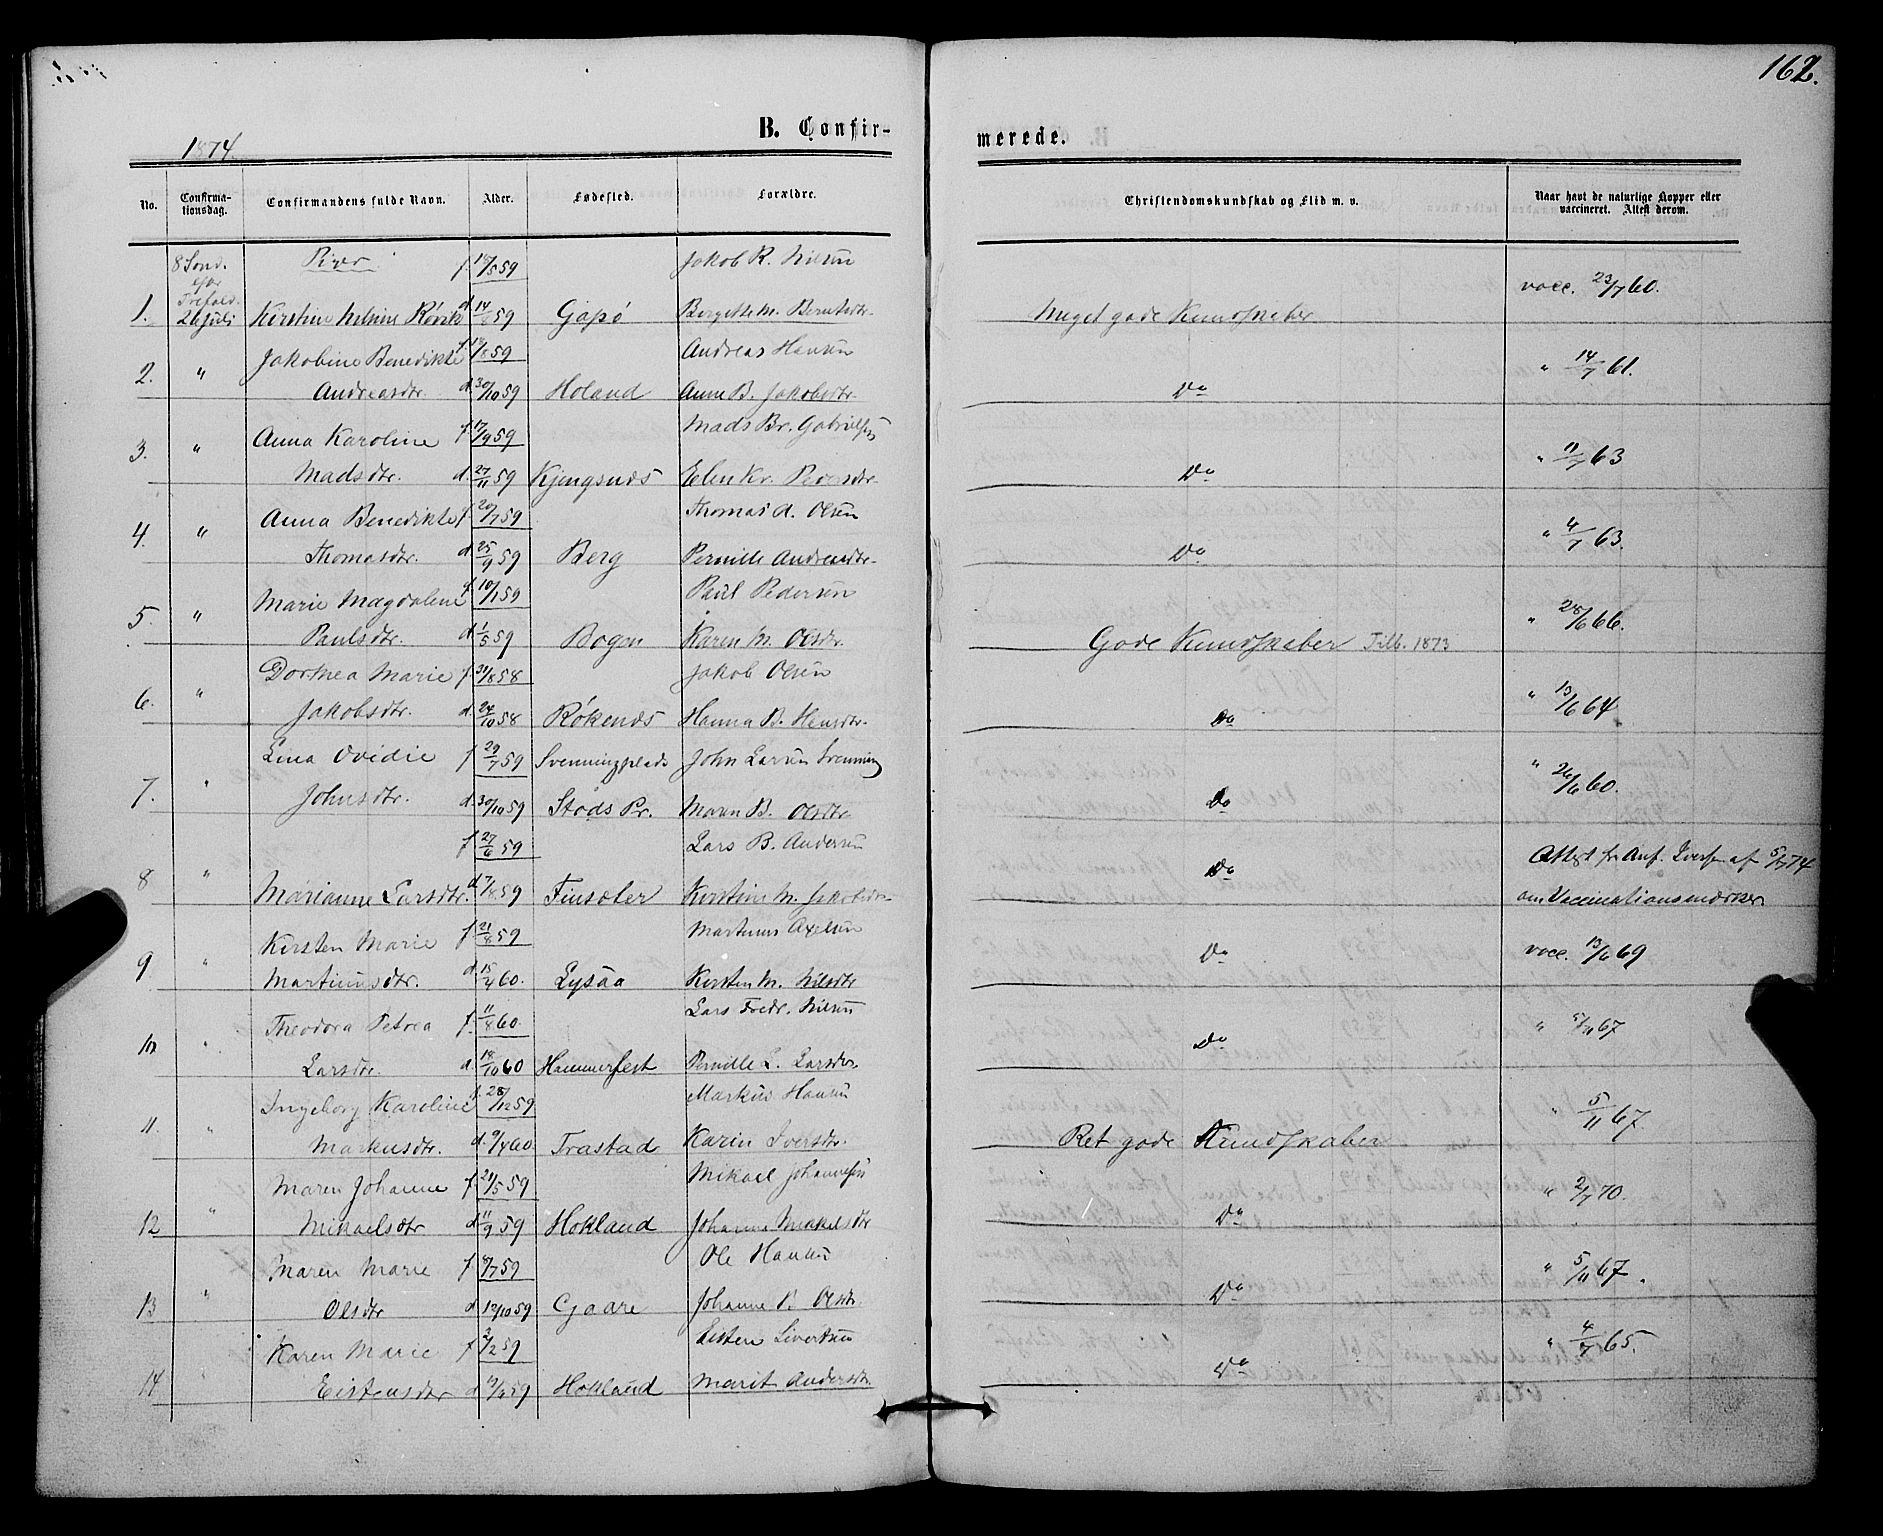 162.
1874.
B. Confir-
merede.
No.
Confirma-
tionsdag.
Confirmandens fulde Navn.
Alder.
Fødested.
Forældre.
Christendomskundskab og Flid m. v.
Naar havt de naturlige Kopper eller
vaccineret. Attest derom.
8 Sønd. Piger f. 59 Jakob R. Nilsen
efter
Trefold. vacc. 23/7 60.
1. 26 Juli Kirstine d. 14/8 59 Gapø Bergitte M. Berntsdtr. Meget gode Kundskaber
Jakobine Benedikte f. 59 Andreas Hansen
2. " Andreasdtr. d. 30/10 59 Holand Anne B. Jakobsdtr. Do " 14/7 61.
Anna Karoline f. 17/9 59 Mads Br. Gabrielsen
3. " Madsdtr. d. 27/11 59 Kjengsnæs Elen Kr. Pedersdtr. Do " 11/7 63
Anna Benedikte f. 20/7 59 Thomas A. Olsen
4. " Thomasdtr. d. 25/9 59 Berg Pernille Andreasdtr. Do " 4/7 63.
Marie Magdalene f. 10/1 59 Paul Pedersen
5. " Paulsdtr. d. 1/5 59 Bogen Karen M. Olsdtr. Gode Kundskaber Tilb. 1873 " 28/6 66.
Dorthea Marie f. 31/8 58 Jakob Olsen
6. " Jakobsdtr. d. 24/10 58 Røkenæs Hanna B. Hansdtr. Do " 13/6 64
Lina Ovidie f 29/7 59 Svenningplads John Larsen Svenning
7. " Johnsdtr. d. 30/10 59 Stods Pr. Maren B. Olsdtr. Do " 26/6 60.
f 27/6 59 Lars B. Andersen
8 " Marianne Larsdtr. d. 7/8 59 Finsæter Kirstine M. Jakobsdtr. Do Attest fr. Anf. Iversen af 5/7 74
om Vaccinationsmærker
Kirsten Marie f 21/8 59 Martinus Axelsen
9 " Martinusdtr. d. 15/4 60. Lysaa Kirsten M. Nilsdtr Do vacc. 13/6 69
Theodora Petrea f. 11/8 60. Lars Fredr. Nilsen
10 " Larsdtr. d. 18/10 60 Hammerfest Pernille L. Larsdtr. Do " 5/11 67
Ingeborg Karoline f. 28/12 59 Markus Hansen
11. " Markusdtr. d. 9/4 60. Trastad Karin Iversdtr. Ret gode Kundskaber " 5/11 67.
Maren Johanne f 21/5 59 Mikael Johannesen
12 " Mikaelsdtr d. 11/9 59 Hokland Johanna Mikelsdtr Do " 2/7 70.
Maren Marie f 59 Ole Hansen
13 " Olsdtr d. 12/10 59 Gaare Johanne P. Olsdtr. Do " 5/11 67.
Karen Marie f 2/2 59 Eisten Sivertsen
14 " Eistensdtr d. 59 Hokland Marit Andersdtr. Do " 4/7 65.